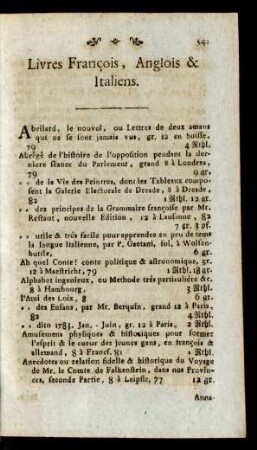 541
Livres François, Anglois &
Italiens.
Abeilard, le nouvel, ou Lettres de deux amans
qui ne se sont jamais vus, gr. 12 en Suisse,
79 4 Rthl.
Abrégé de l'histoire de l'opposition pendant la der-
niere séance du Parlement, grand 8 à Londres,
79 9 gr.
- - de la Vie des Peintres, dont les Tableaux compo-
sent la Galerie Electorale de Dresde, 8 à Dresde,
82 1 Rthl. 12 gr.
- - des principes de la Grammaire françoise par Mr.
Restaut, nouvelle Edition, 12 à Lausanne, 82
7 gr. 3 pf.
- - utile & très facile pour apprendre en peu de tems
la langue Italienne, par P. Gaetani, sol, à Wolfen-
buttle.
Ah quel Conte! conte politique & astronomique, gr.
12 à Maestricht, 79 1 Rthl. 18 gr.
Alphabet ingenieux, ou Methode très particuliére &c.
8 à Hambourg, 3 Rthl.
l'Ami des Loix, 8 6 gr.
- - des Enfans, par Mr. Berquin, grand 12 à Paris,
82 4 Rthl.
- - dito 1783. Jan. - Juin, gr. 12 à Paris, 2 Rthl.
Amusemens physiques & historiques pour former
l'esprit & le coeur des jeunes gens, en françois &
allemand, 8 à Francf. 81 1 Rthl.
Anecdotes ou relation fidelle & historique du Voyage
de Mr. le Comte de Falkenstein, dans nos Provin-
ces, seconde Partie, 8 à Leipsic, 77 12 gr.
Anna-